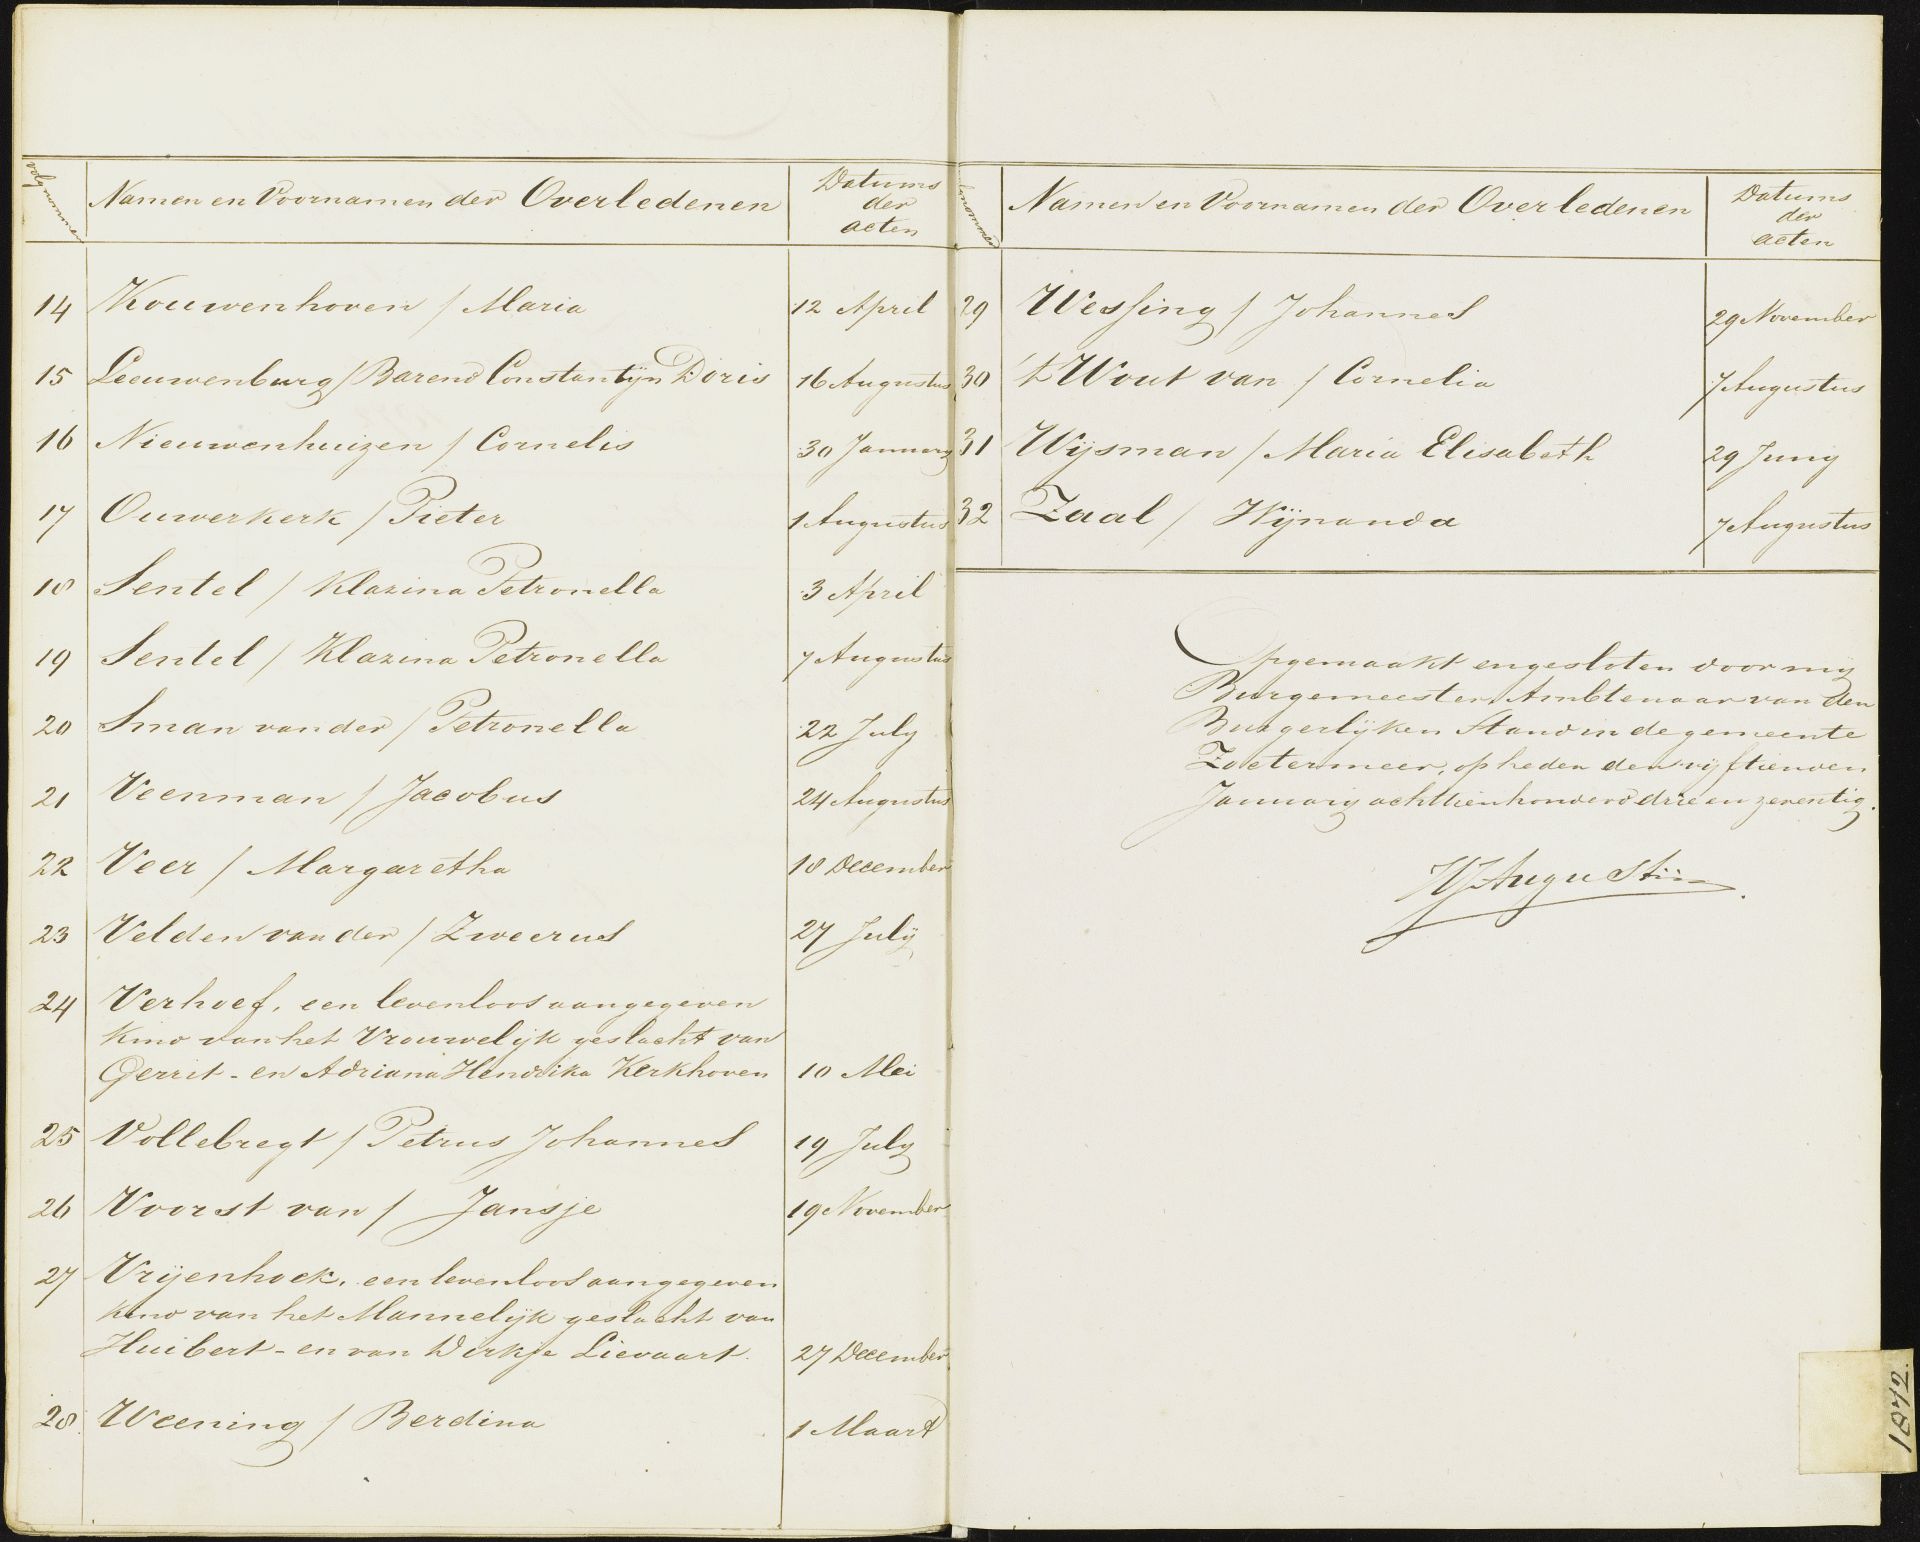 volgnommer Namen en Voornamen der Overledenen Datums
der
acten
14 Kouwenhoven / Maria 12 April
15 Leeuwenburg / Barend Constantijn Doris 16 Augustus
16 Nieuwenhuizen / Cornelis 30 January
17 Ouwerkerk / Pieter 1 Augustus
18 Sentel / Klazina Petronella 3 April
19 Sentel / Klazina Petronella 7 Augustus
20 Sman van der / Petronella 22 July
21 Veenman / Jacobus 24 Augustus
22 Veer / Margaretha 18 December
23 Velden van der / Zweerus 27 Julij
24 Verhoef, een levenloos aangegeven
kind van het Vrouwelijk geslacht van
Gerrit - en Adriana Hendrika Kerkhoven 10 Mei
25 Vollebregt / Petrus Johannes 19 July
26 Voorst van / Jansje 19 November
27 Vrijenhoek, een levenloos aangegeven
kind van het Mannelijk geslacht van
Huibert - en van Dirkje Lievaart. 27 December
28 Weening / Berdina 1 Maart
Namen en Voornamen der Overledenen Datums
der
acten
29 Wessing / Johannes 29 November
30 't Wout van / Cornelia 7 Augustus
31 Wijsman / Maria Elisabeth 29 Juny
32 Zaal / Wijnanda 7 Augustus
Opgemaakt en gesloten door mij
Burgemeester Ambtenaar van den
Burgerlijken Stand in de gemeente
Zoetermeer, op heden den vijftienden
January achttienhonderd drie en zeventig.
WJAugustijn
1872.